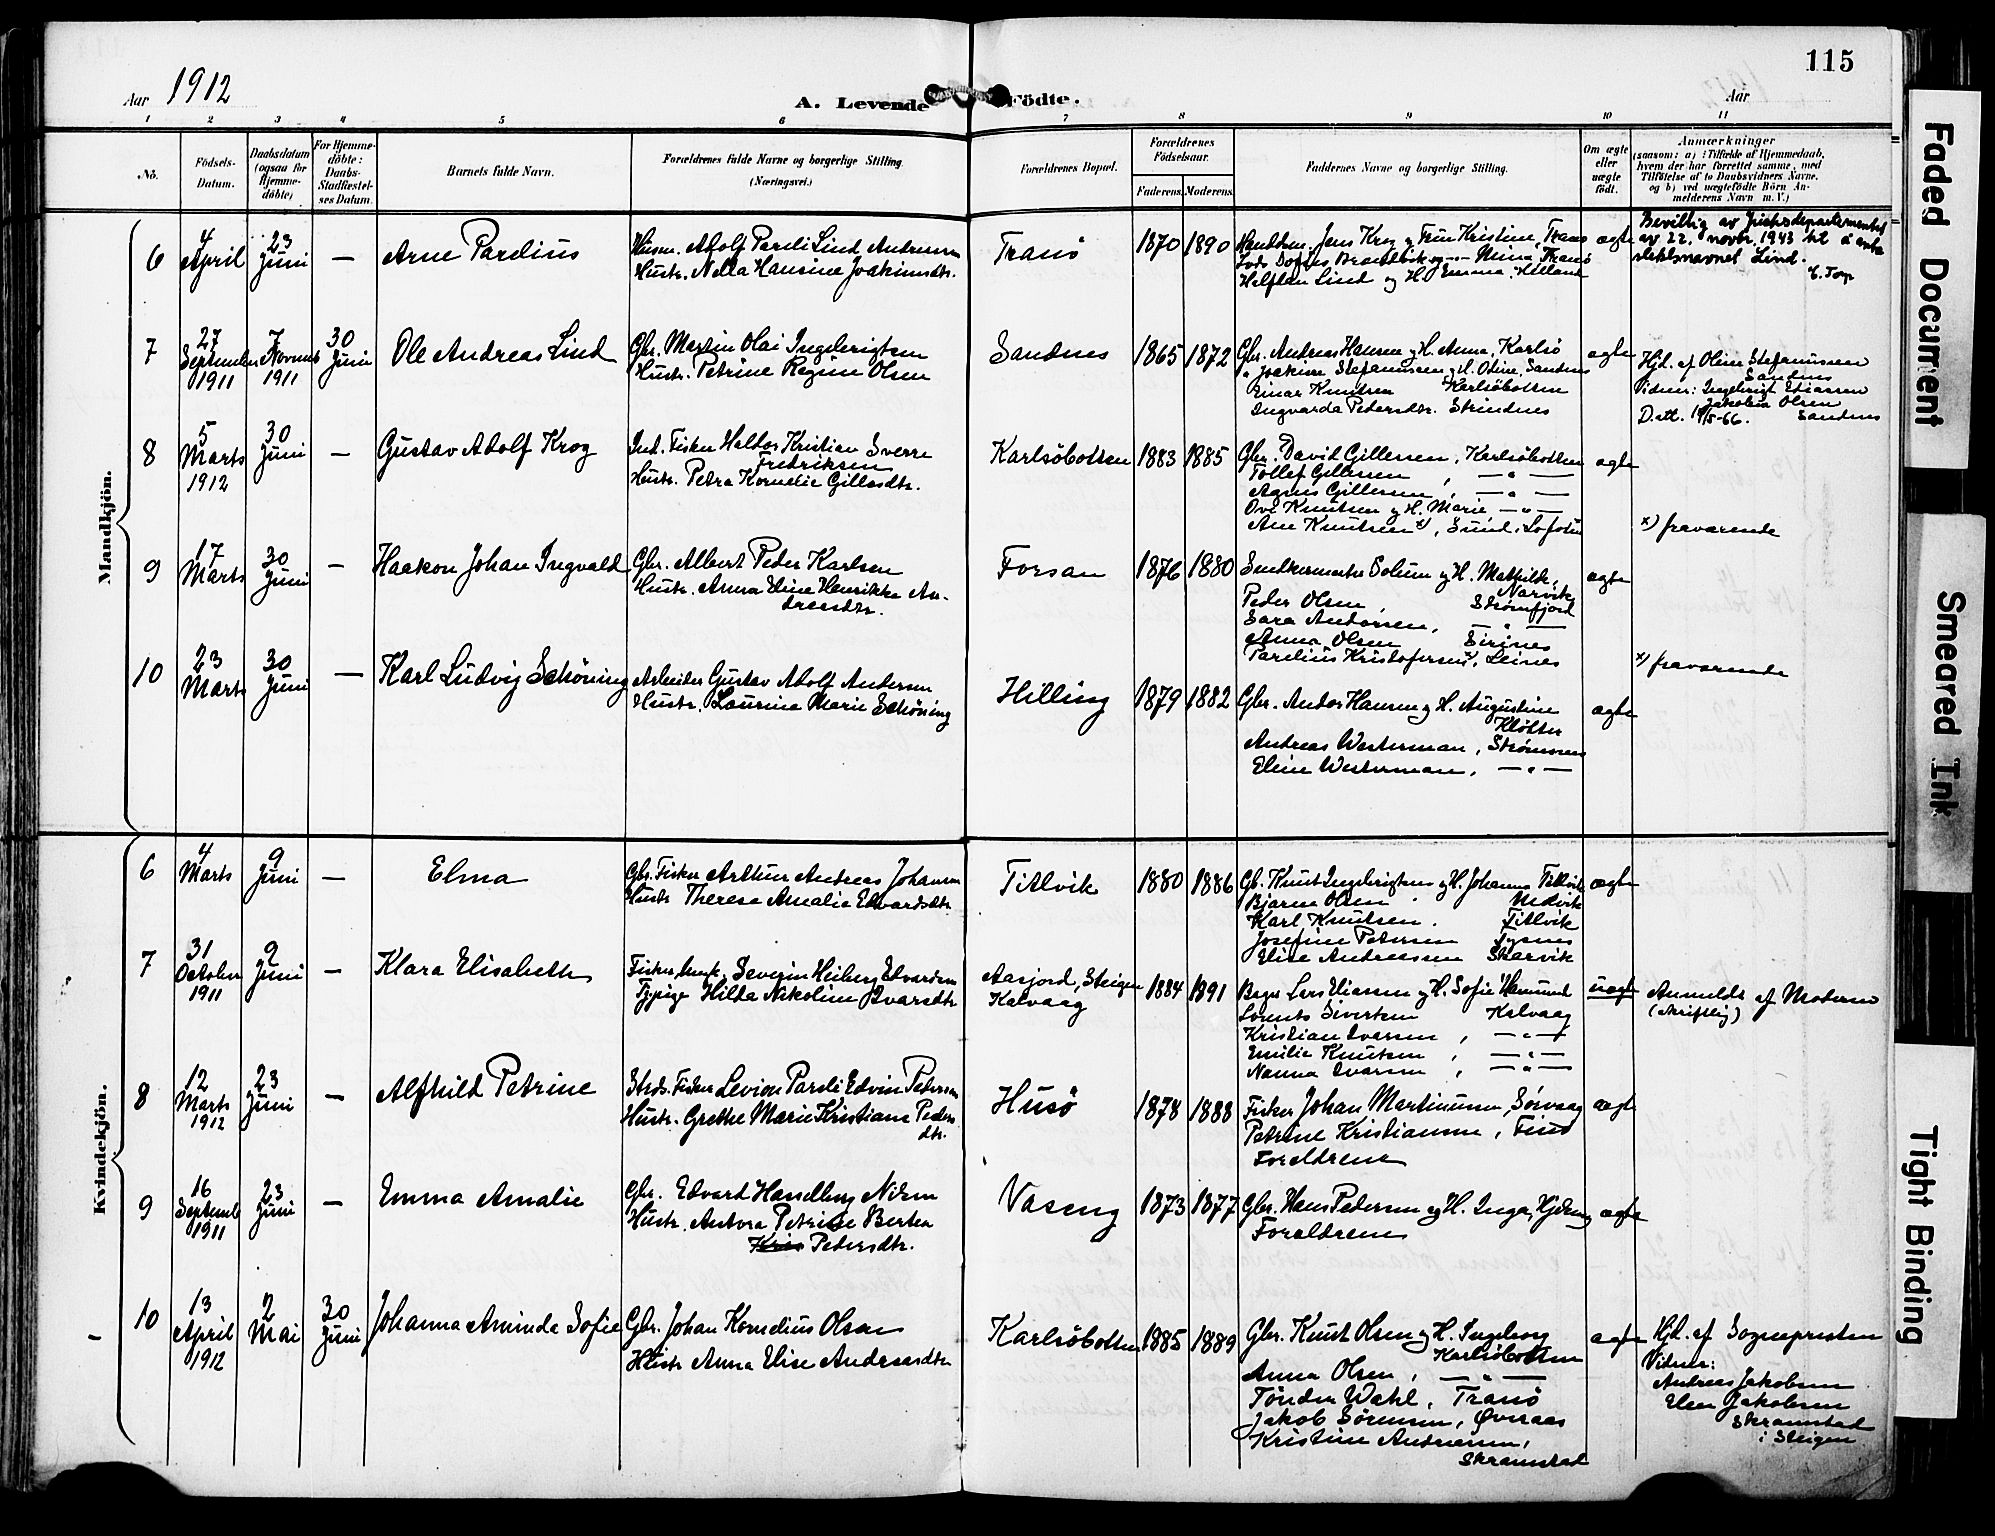 115
Aar 1912
A. Levende Födte.
Aar
1 2 3 4 5 6 7 8 9 10 11
No.
Födsels-
Datum.
Daabsdatum
(ogsaa for
Hjemme-
döbte)
For Hjemme-
döbte:
Daabs-
Stadfæstel-
ses Datum.
Barnets fulde Navn.
Forældrenes fulde Navne og borgerlige Stilling.
(Næringsvei.)
Forældrenes Bopæl.
Forældrenes
Födselsaar.
Faderens. Moderens.
Faddernes Navne og borgerlige Stilling.
Om ægte
eller
uægte
født.
Anmærkninger
(saasom: a) i Tilfælde af Hjemmedaab,
hvem der har forrettet samme, med
Tilföielse af to Daabsvidners Navne,
og b) ved uægtefödte Börn An-
melderens Navn m. V.)
Mandkjön.
6
4
April
23
Juni
—
Arne Parelius
Husm. Adolf Pareli Lind Andersen
Hustr. Nella Hansine Joakimsdtr.
Tranö
1870 1890
Handelsm. Jens Krog og Frue Kristine, Tranö
Mina, Tranö
Halftan Lind og H. Emma, Helland
ægte
Bevillig av Justisdepartementet
av 22. novbr. 1943 til å anta
slektsnavnet Lind.
7
27
September
1911
7
Novemb
1911
30
Juni
Ole Andreas Lind
Gbr. Martin Olai Ingebrigtsen
Hustr. Petrine Regine Olsen
Sandnes
1865 1872
Gbr. Andreas Hansen og H. Anna, Karlsö
" Joakim Stefanussen og H. Oline, Sandnes
Einar Knudsen Karlsöbotten
Ingvarda Pedersdtr. Strindnes
ægte
Hjd. af Oline Stefanussen
Sandnes
Vidner: Ingebrigt Eliassen
Jakobin Olsen
Sandnes
8
5
Marts
1912
30
Juni
—
Gustav Adolf Krog
Ind. Fisker Haldor Kristian Sverre
Fredriksen
Hustr. Petra Kornelie Gillesdtr.
Karlsöbotten
1883 1885
Gbr. David Gillesen, Karlsöbotten
Tollef Gillesen, — " —
Agnes Gillesen, — " —
Ove Knutsen og H. Marie — " —
Ane Knutsen x), Sund i Lofoten
ægte
x) fraværende
9
17
Marts
30
Juni
—
Haakon Johan Ingvald
Gbr. Albert Peder Karlsen
Hustr. Anna Eline Henrikke An-
dreasdtr.
Forsan
1876 1880
Snedkermester Solum og H. Mathilde,
Narvik
Peder Olsen, Strömfjord
Sara Andersen, — " —
Anna Olsen Sirines
Parelius Kristofersen x), Leines
ægte
x) fraværende
10
23
Marts
30
Juni
—
Karl Ludvig Schöning
Arbeider Gustav Adolf Andersen
Hustr. Laurine Marie Schöning
Hilling
1879 1882
Gbr. Andor Hansen og H. Augustine
Klötter
Andreas Westerman, Strömsnes
Eline Westerman, — " —
ægte
Kvindekjön.
6
4
Marts
9
Juni
—
Elma
Gbr. Fisker Arthur Andreas Johansen
Hustr Therese Amalie Edvardsdtr.
Titlvik
1880 1886
Gb. Knut Ingebrigtsen og H. Johanna Titlvik
Bjarne Olsen
Karl Knutsen. Titlvik
Josefine Petersen Tysnes
Elise Andreassen Skarvik
ægte
7
31
October
1911
9
Juni
—
Klara Elisabeth
Fisker, Ungk. Severin Heiberg Edvardsen
Tjpige Hilda Nikoline Ivarsdtr
Aasjord, Steigen
Kalvaag
1884 1891
Lars Eliassen og H. Sofie Hamsund
Lorents Sivertsen Kalvaag
Kristian Ivarsen, — " —
Emilie Knutsen, — " —
Nanna Ivarsen, — " —
uægte
Anmeldt af Moderen
(skriftlig)
8
12
Marts
1912
23
Juni
—
Alfhild Petrine
Strds. Fisker Levion Pareli Edvin Petersen
Hustr. Grethe Marie Kristiane Peders
dtr.
Husö
1878 1888
Fisker Johan Martinussen, Sörvaag
Petrine Kristiansen, Finö
Forældrene
ægte
9
16
Septemb
1911
23
Juni
—
Emma Amalie
Gbr. Edvard Handberg Nilsen
Hustr. Antora Petrine Bertea
Kris Petersdtr.
Vaseng
1873 1877
Gbr. Hans Pedersen og H. Inga, Hjdeng
Forældrene
ægte
10
13
April
1912
2
Mai
30
Juni
Johanna Aminda Sofie
Gbr. Johan Kornelius Olsen
Hustr Anna Elise Andreasdtr
Karlsöbotten
1885 1889
Gbr. Knut Olsen og H. Ingeborg
Karlsöbotten
Anna Olsen, — " —
Tönder Wahl, Tranö
Jakob Sörensen, Överaas
Kristine Andreassen,
Skramstad
ægte
Hjd. af Sognepresten
Vidner:
Andreas Jakobsen
Elen Jakobsen
Skramstad
i Steigen
Faded Document
Smeared Ink
Tight Binding